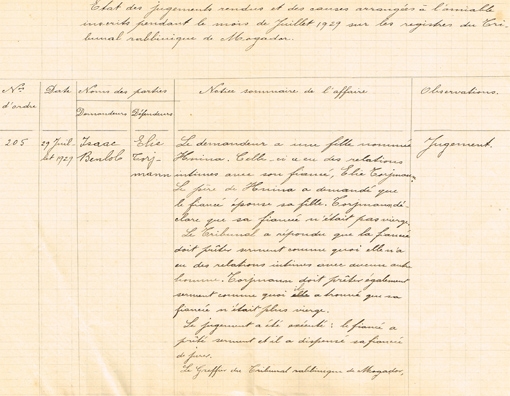 Etat des jugements rendus et des causes arrangées à l'amiable
inscrits pendant le mois de Juillet 1929 sur les registres du Tri-
bunal rabbinique de Mogador.
Nos d'ordre
Date
Noms des parties
Demandeurs
Défendeurs
Notice sommaire de l'affaire
Observations.
205
29 Juil-
let 1929
Isaac
Benlolo
Elie
Torj-
mann
Le demandeur a une fille nommée
Hnina. Celle-ci a eu des relations
intimes avec son fiancé, Elie Torjmann.
Le père de Hnina a demandé que
le fiancé épouse sa fille. Torjmann dé-
clare que sa fiancée n'était pas vierge.
Le Tribunal a répondu que la fiancée
doit prêter serment comme quoi elle n'a
eu des relations intimes avec aucun autre
homme. Torjmann doit prêter également
serment comme quoi elle a trouvé que sa
fiancée n'était plus vierge.
Le jugement a été exécuté : le fiancé a
prêté serment et il a dispensé sa fiancée
de jurer.
Le Greffier du Tribunal rabbinique de Mogador.
Jugement.